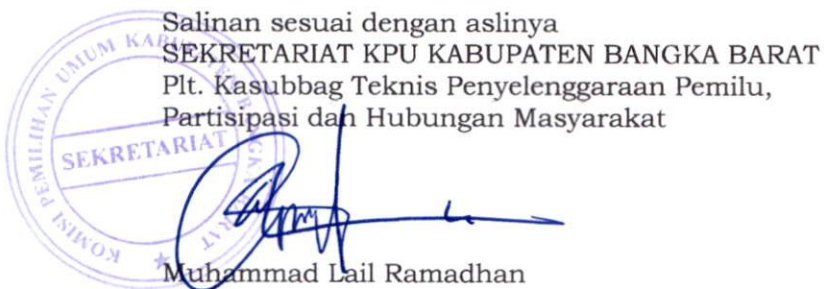 Salinan sesuai dengan aslinya
SEKRETARIAT KPU KABUPATEN BANGKA BARAT
Plt. Kasubbag Teknis Penyelenggaraan Pemilu,
Partisipasi dan Hubungan Masyarakat
KOMISI PEMILIHAN UMUM KABUPATEN BANGKA BARAT
SEKRETARIAT
Muhammad Lail Ramadhan